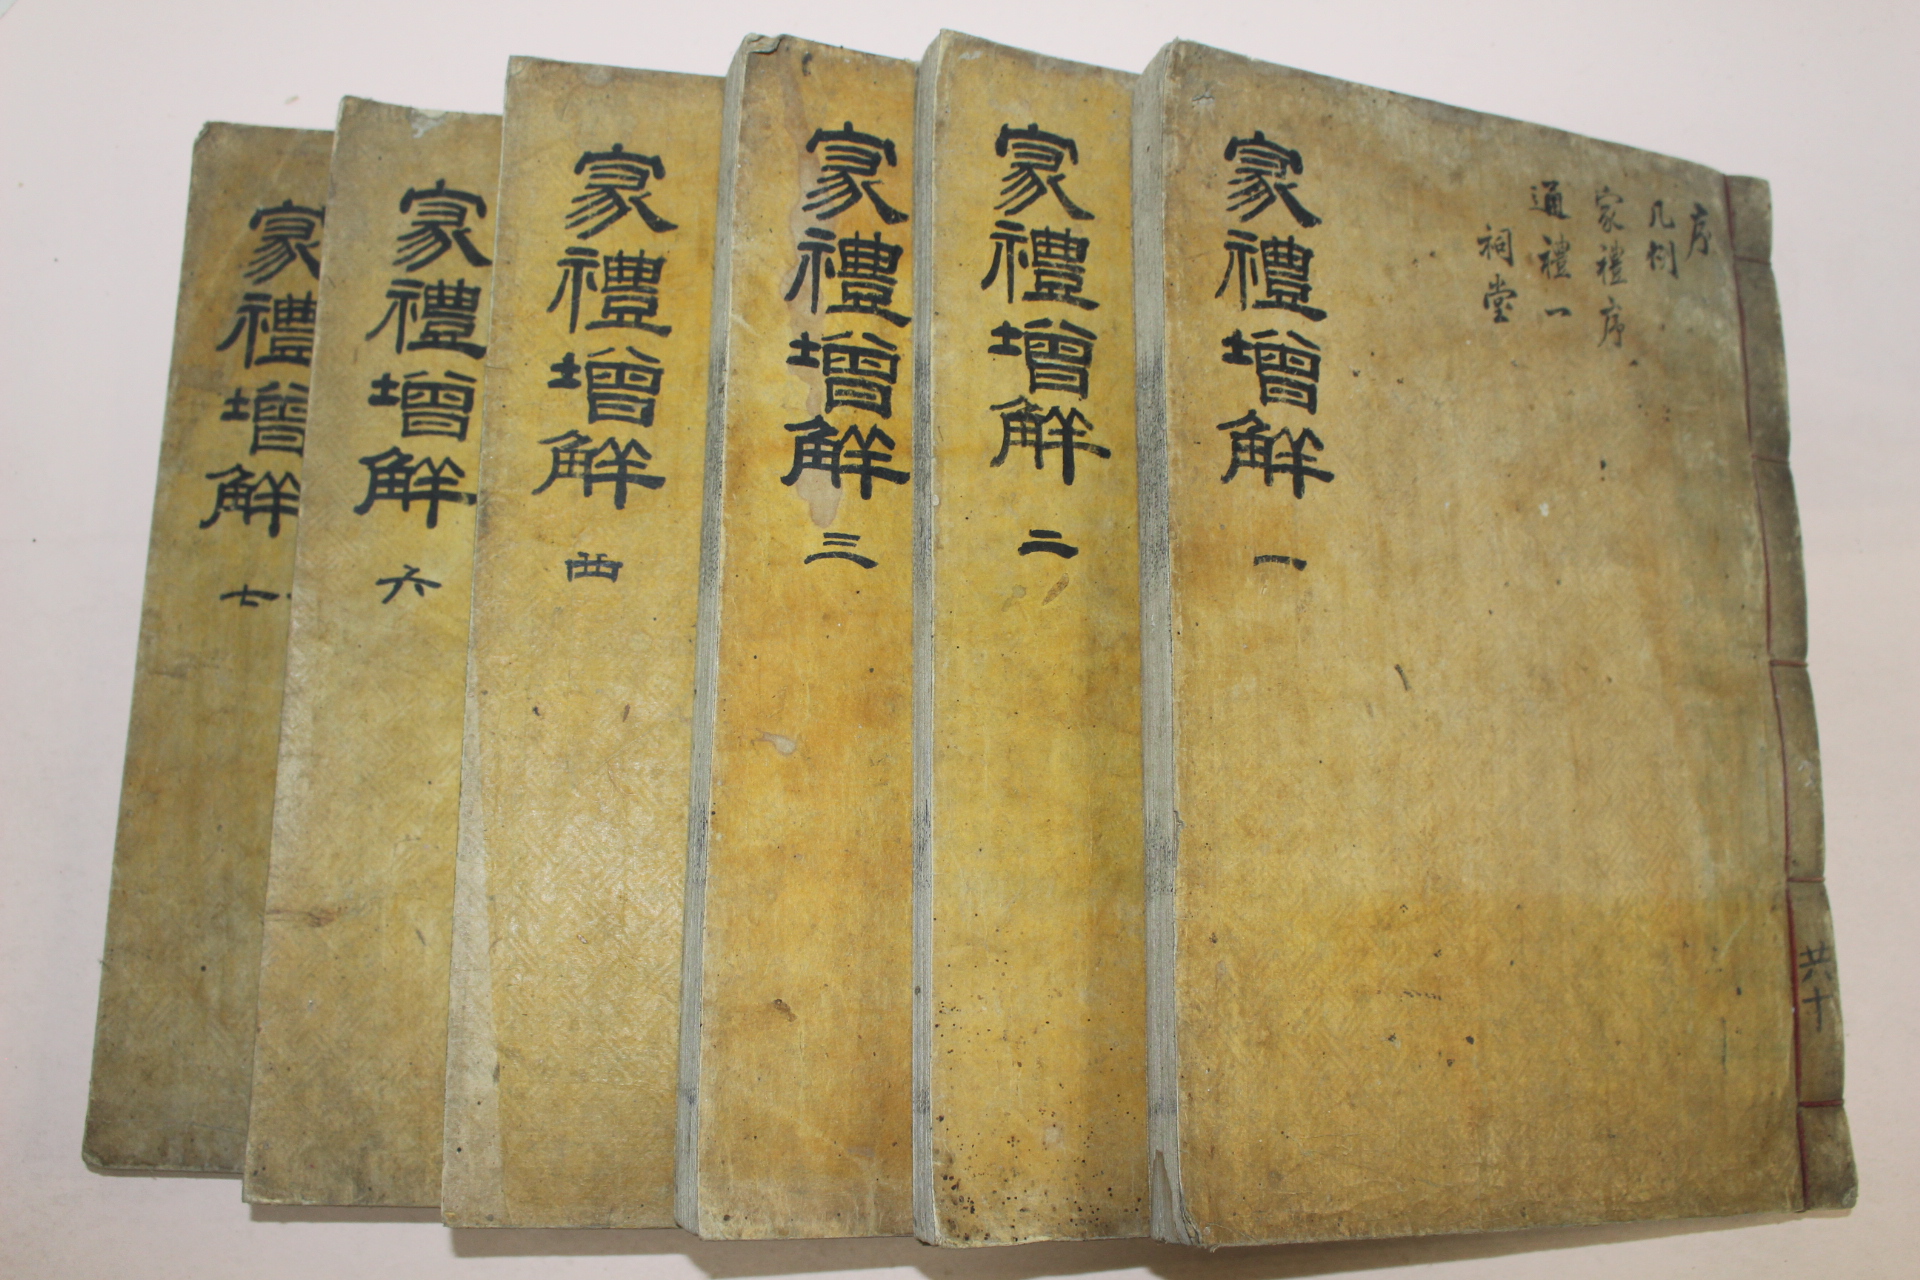 序
凡例
家禮序
通禮一
祠堂
共十
家禮增解 一
家禮增解 二
家禮增解 三
家禮增解 四
家禮增解 六
家禮增解 七